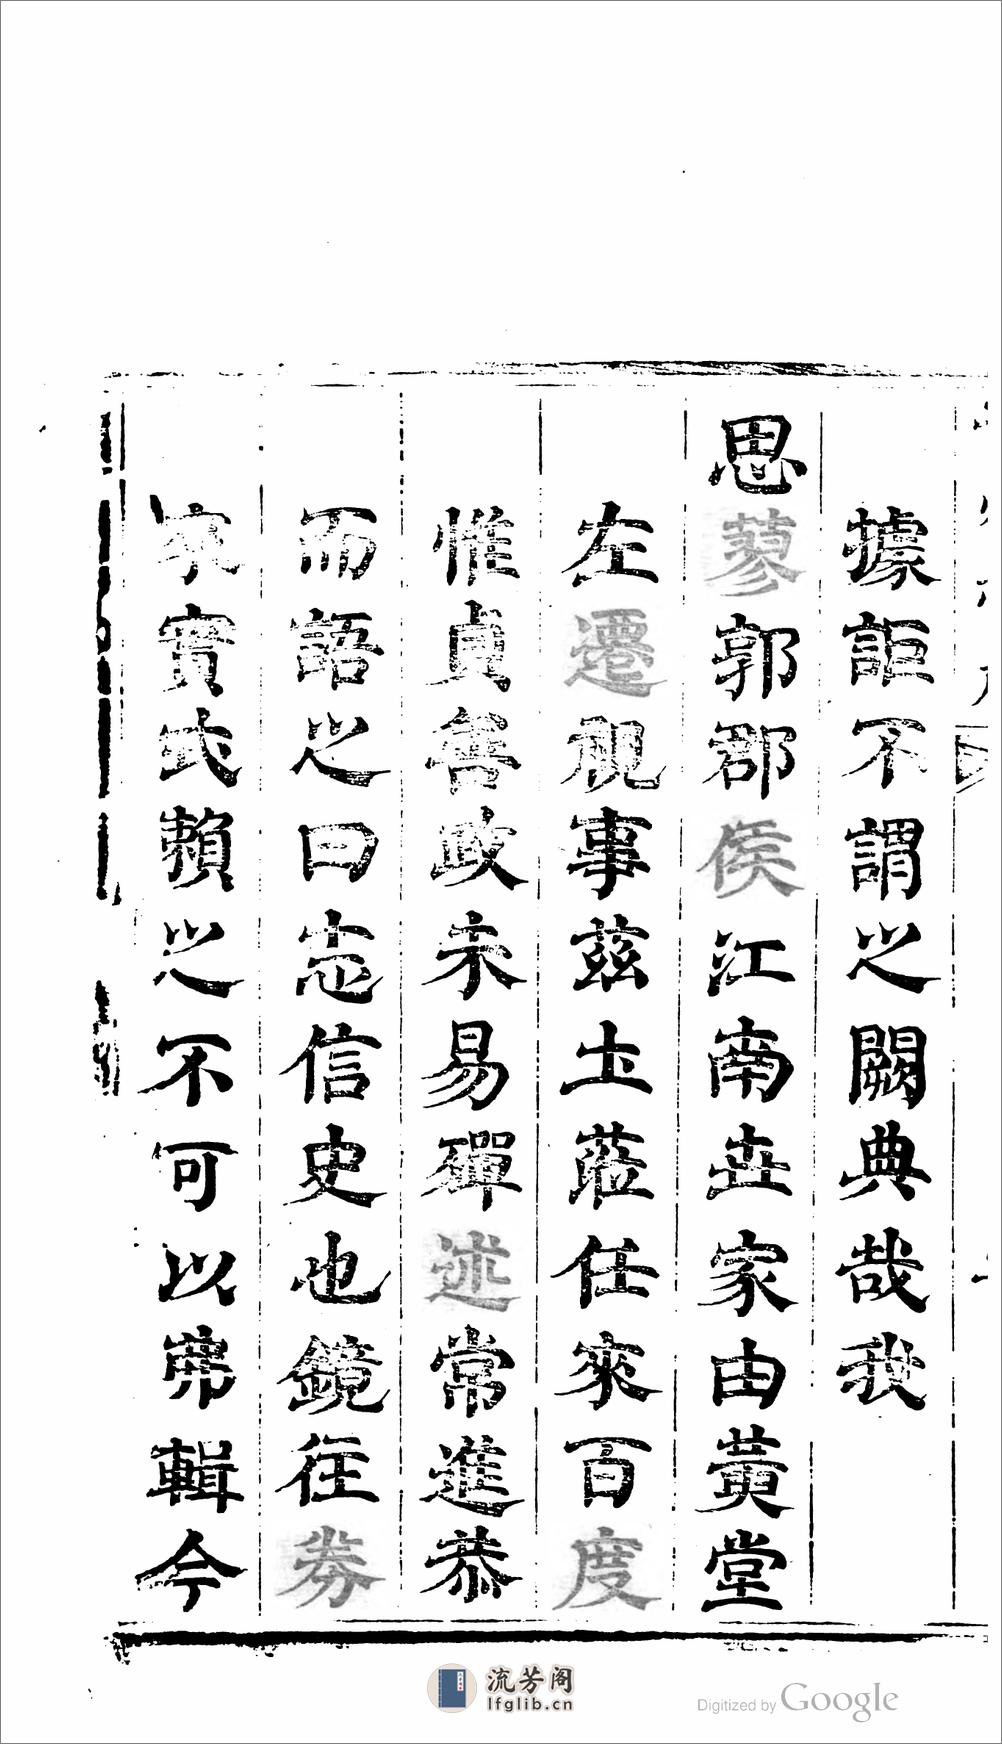 據詎不謂之闕典哉我
思蓼郭郡侯江南世家由黃堂
左遷視事茲土蒞任來百度
惟貞善政未易殫述常進恭
而語之曰志信史也鏡往券
來實式賴之不可以弗輯今
流芳阁
lfglib.cn
Digitized by Google